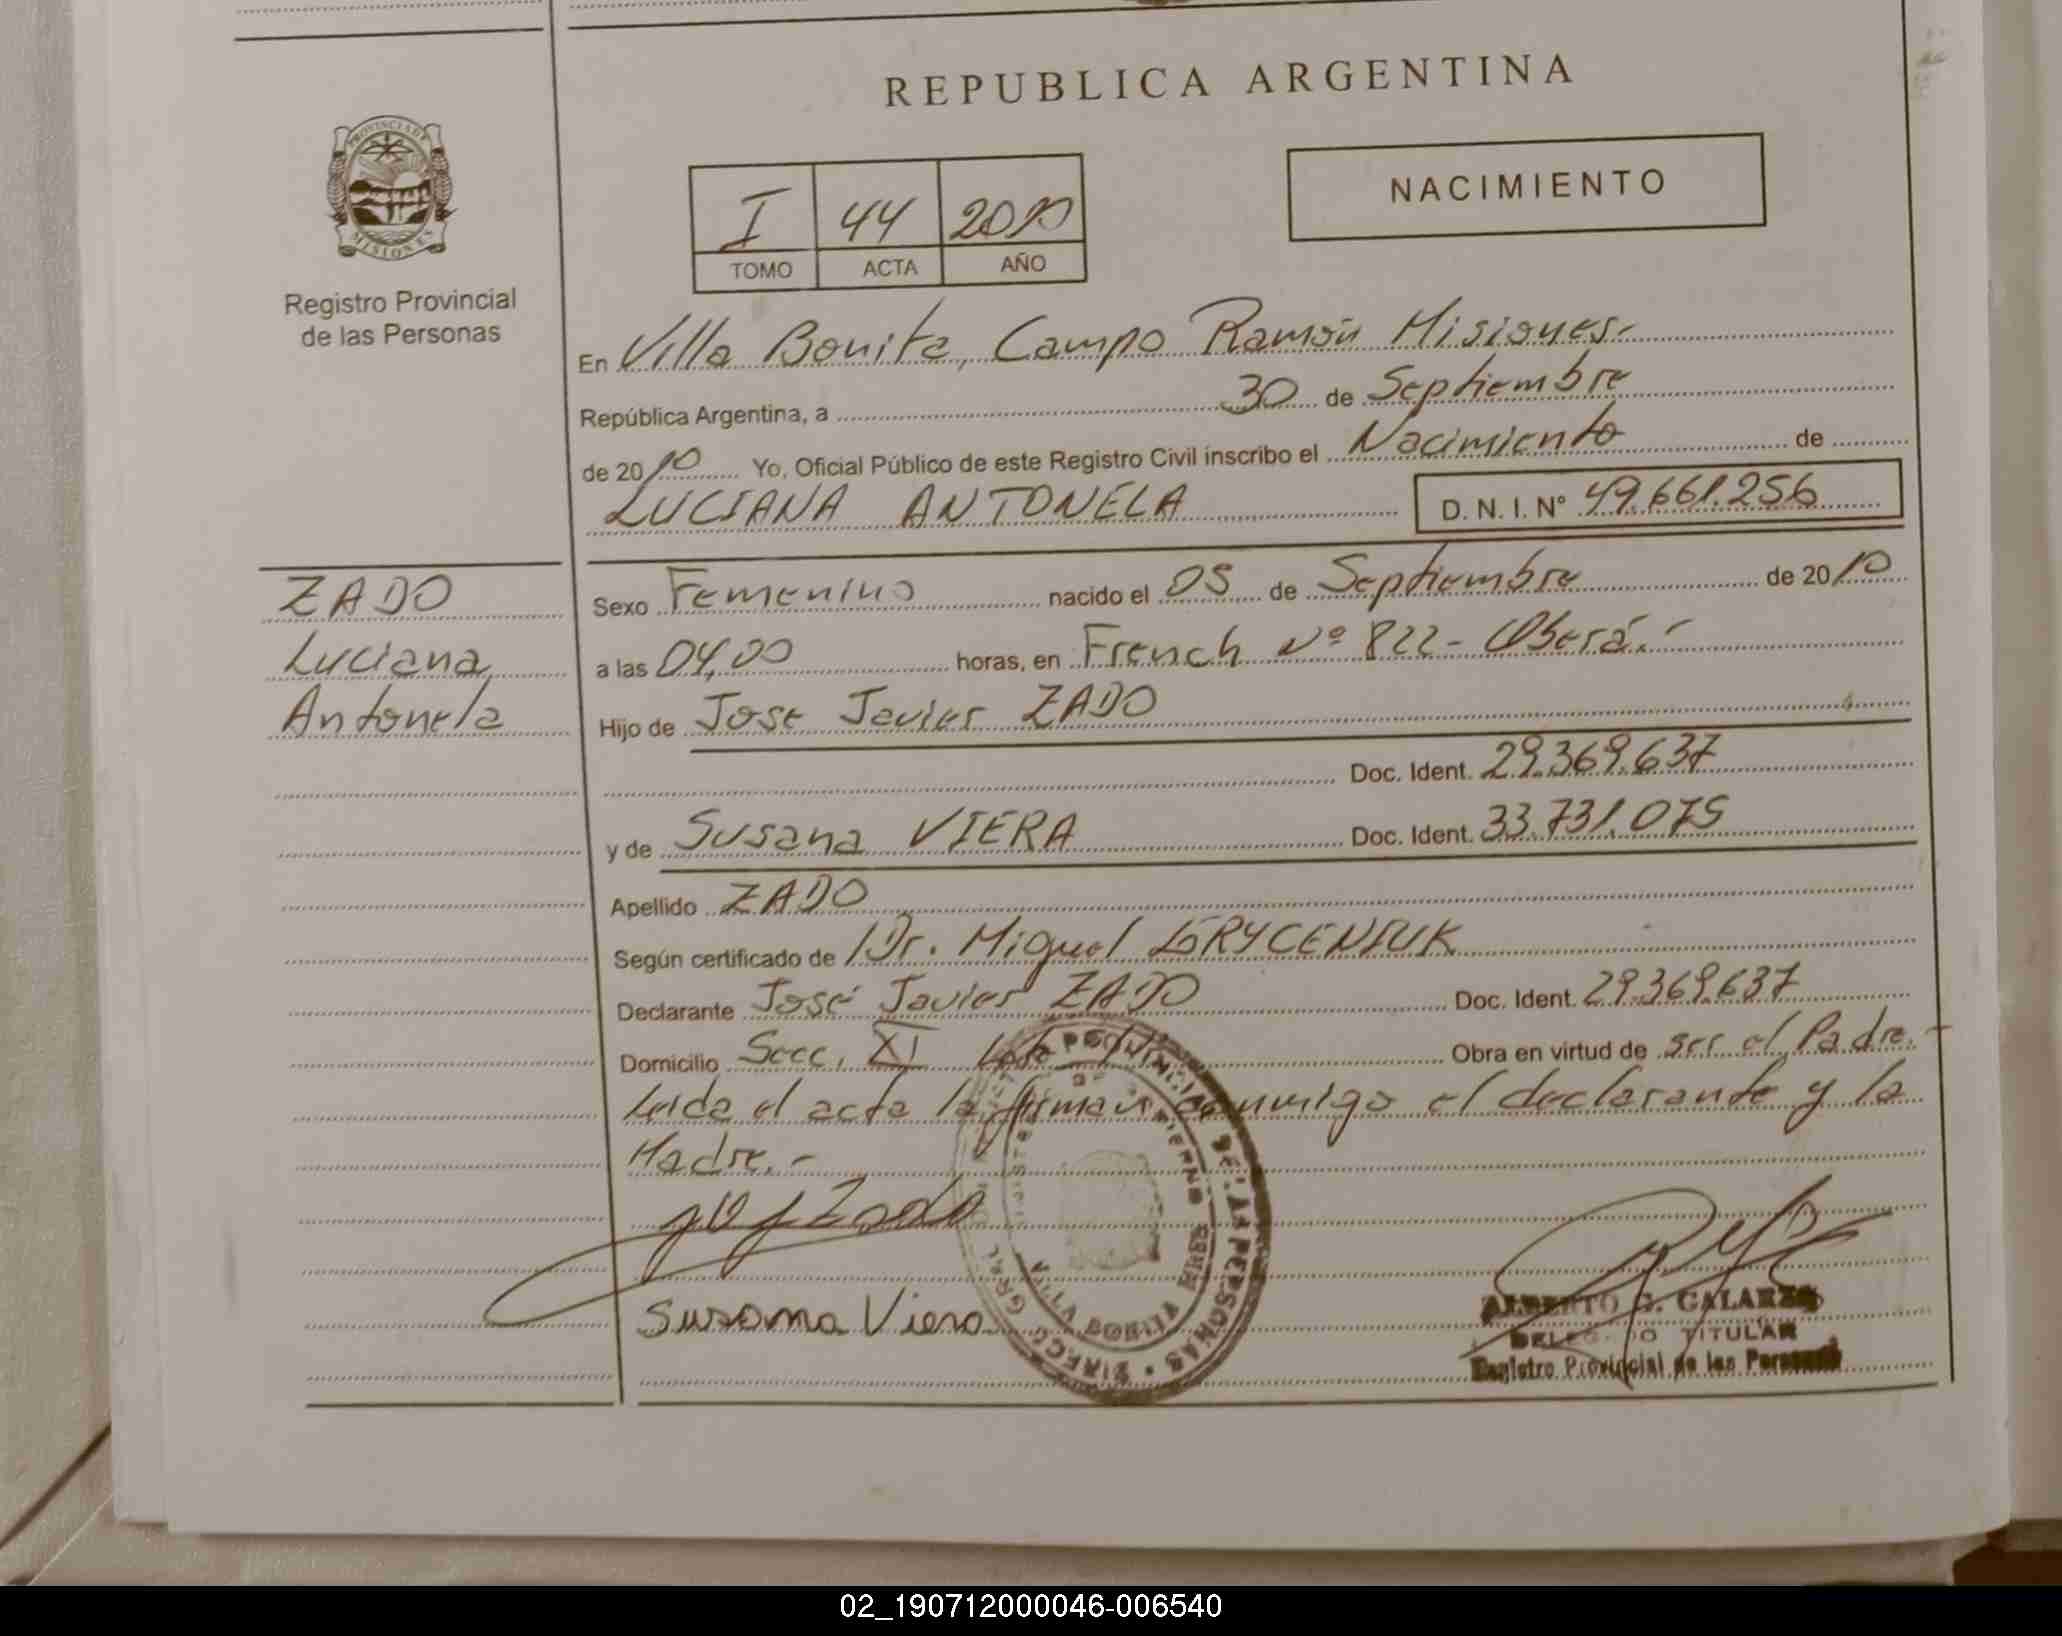 REPUBLICA ARGENTINA
PROVINCIA DE
MISIONES
Registro Provincial
de las Personas
I 44 2010
TOMO ACTA AÑO
NACIMIENTO
En Villa Bonita, Campo Ramón Misiones.-
República Argentina, a 30 de Septiembre
de 2010 Yo, Oficial Público de este Registro Civil inscribo el Nacimiento de
LUCIANA ANTONELA D. N. I. Nº 49.661.256
ZADO
Luciana
Antonela
Sexo Femenino nacido el 05 de Septiembre de 2010
a las 04,00 horas, en French Nº 822 - Oberá.-
Hijo de Jose Javier ZADO
Doc. Ident. 29.369.637
y de Susana VIERA Doc. Ident. 33.731.075
Apellido ZADO
Según certificado de Dr. Miguel GRYCENIUK
Declarante José Javier ZADO Doc. Ident. 29.369.637
Domicilio Secc. XI Obra en virtud de ser el Padre.-
Leida el acta la firman conmigo el declarante y la
Madre.-
Zado
Susana Viera
VILLA BONITA
DE LAS PERSONAS
ALBERTO G. GALARZA
DELEGADO TITULAR
Registro Provincial de las Personas
02_190712000046-006540